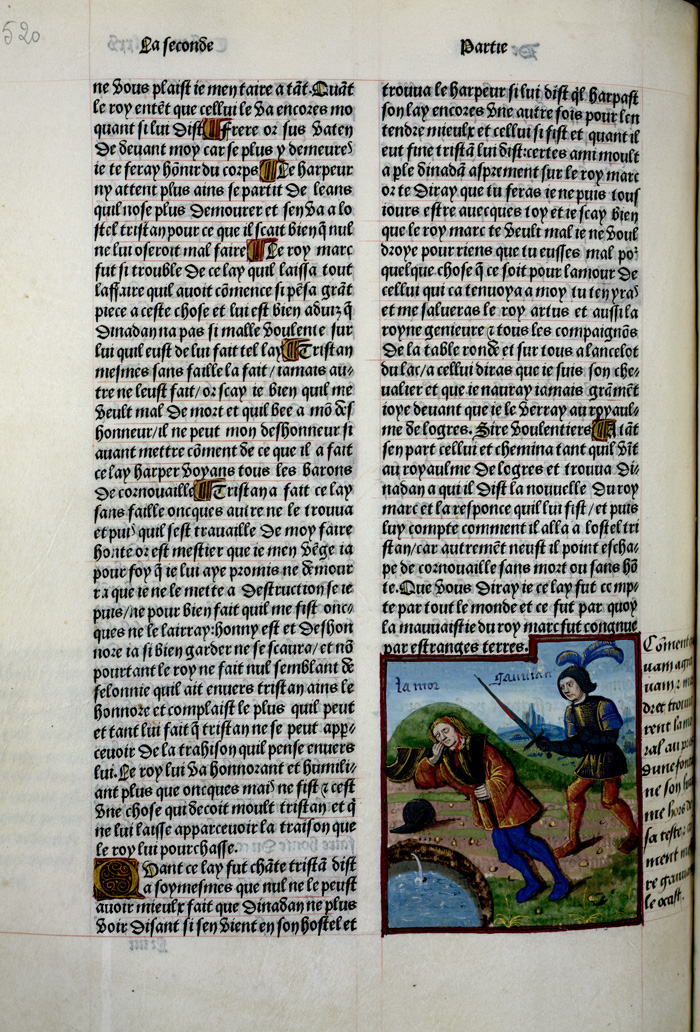 520
La seconde
Partie
ne vous plaist ie men taire a tāt. Quāt
le roy entēt que cellui le va encores mo
quant si lui dist Frere or sus vaten
de devant moy car se plus y demeures
ie te feray hōnir du corps Le harpeur
ny attent plus ains se partit de leans
quil nose plus demourer et sen va a lo
stel tristan pour ce que il scait bien q̄ nul
ne lui oseroit mal faire Le roy marc
fut si trouble de ce lay quil laissa tout
laffaire quil auoit cōmence si pēsa grāt
piece a ceste chose et lui est bien aduiz q̄
dinadan na pas si malle voulente sur
lui quil eust de lui fait tel lay Tristan
mesmes sans faille la fait / iamais au⸗
tre ne leust fait / or scay ie bien quil me
veult mal de mort et quil bee a mō des
honneur / il ne peut mon deshonneur si
auant mettre cōment de ce que il a fait
ce lay harper voyans tous les barons
de cornouaille Tristan a fait ce lay
sans faille oncques autre ne le trouua
et puis quil sest trauaille de moy faire
honte or est mestier que ie men vēge ia
pour foy q̄ ie lui aye promis ne demour
ra que ie ne le mette a destruction se ie
puis / ne pour bien fait quil me fist onc⸗
ques ne le lairray: honny est et deshon
nore ia si bien garder ne se scaura / et nō
pourtant le roy ne fait nul semblant de
felonnie quil ait enuers tristan ains le
honnore et complaist le plus quil peut
et tant lui fait q̄ tristan ne se peut app⸗
ceuoir de la trahison quil pense enuers
lui. Le roy lui va honnorant et humili⸗
ant plus que oncques mais ne fist ⁊ cest
vne chose qui decoit moult tristan et q̄
ne lui laisse apparceuoir la traison que
le roy lui pourchasse.
Quant ce lay fut chāte tristā dist
a soymesmes que nul ne le peust
auoir mieulx fait que dinadan ne plus
voir disant si sen vient en son hostel et
trouua le harpeur si lui dist ql̄ harpast
son lay encores vne autre fois pour len
tendre mieulx et cellui si fist et quant il
eut fine tristā lui dist: certes ami moult
a ple dinadā asprement sur le roy marc
or te diray que tu feras ie ne puis tous
iours estre auecques toy et ie scay bien
que le roy marc te veult mal ie ne voul
droye pour riens que tu eusses mal por
quelque chose q̄ ce soit pour lamour de
cellui qui ca tenuoya a moy tu ten yras
et me salueras le roy artus et aussi la
royne genieure ⁊ tous les compaignōs
de la table ronde et sur tous a lancelot
du lac / a cellui diras que ie suis son che⸗
ualier et que ie nauray iamais grāment
ioye deuant que ie le verray au royaul⸗
me de logres. Sire voulentiers A tāt
sen part cellui et chemina tant quil vīt
au royaulme de logres et trouua di⸗
nadan a qui il dist la nouuelle du roy
marc et la responce quil lui fist / et puis
luy compte comment il alla a lostel tri
stan / car autremēt neust il point escha⸗
pe de cornouaille sans mort ou sans hō
te. Que vous diray ie ce lay fut cōmp⸗
te par tout le monde et ce fut par quoy
la mauuaistie du roy marc fut congnue
par estranges terres.
lamor
gauuian
Cōment
uain
dret trouu
rent la mo
ral au p
dune font
ne son h
me hors d
sa teste
ment
re gauu
le ocist.